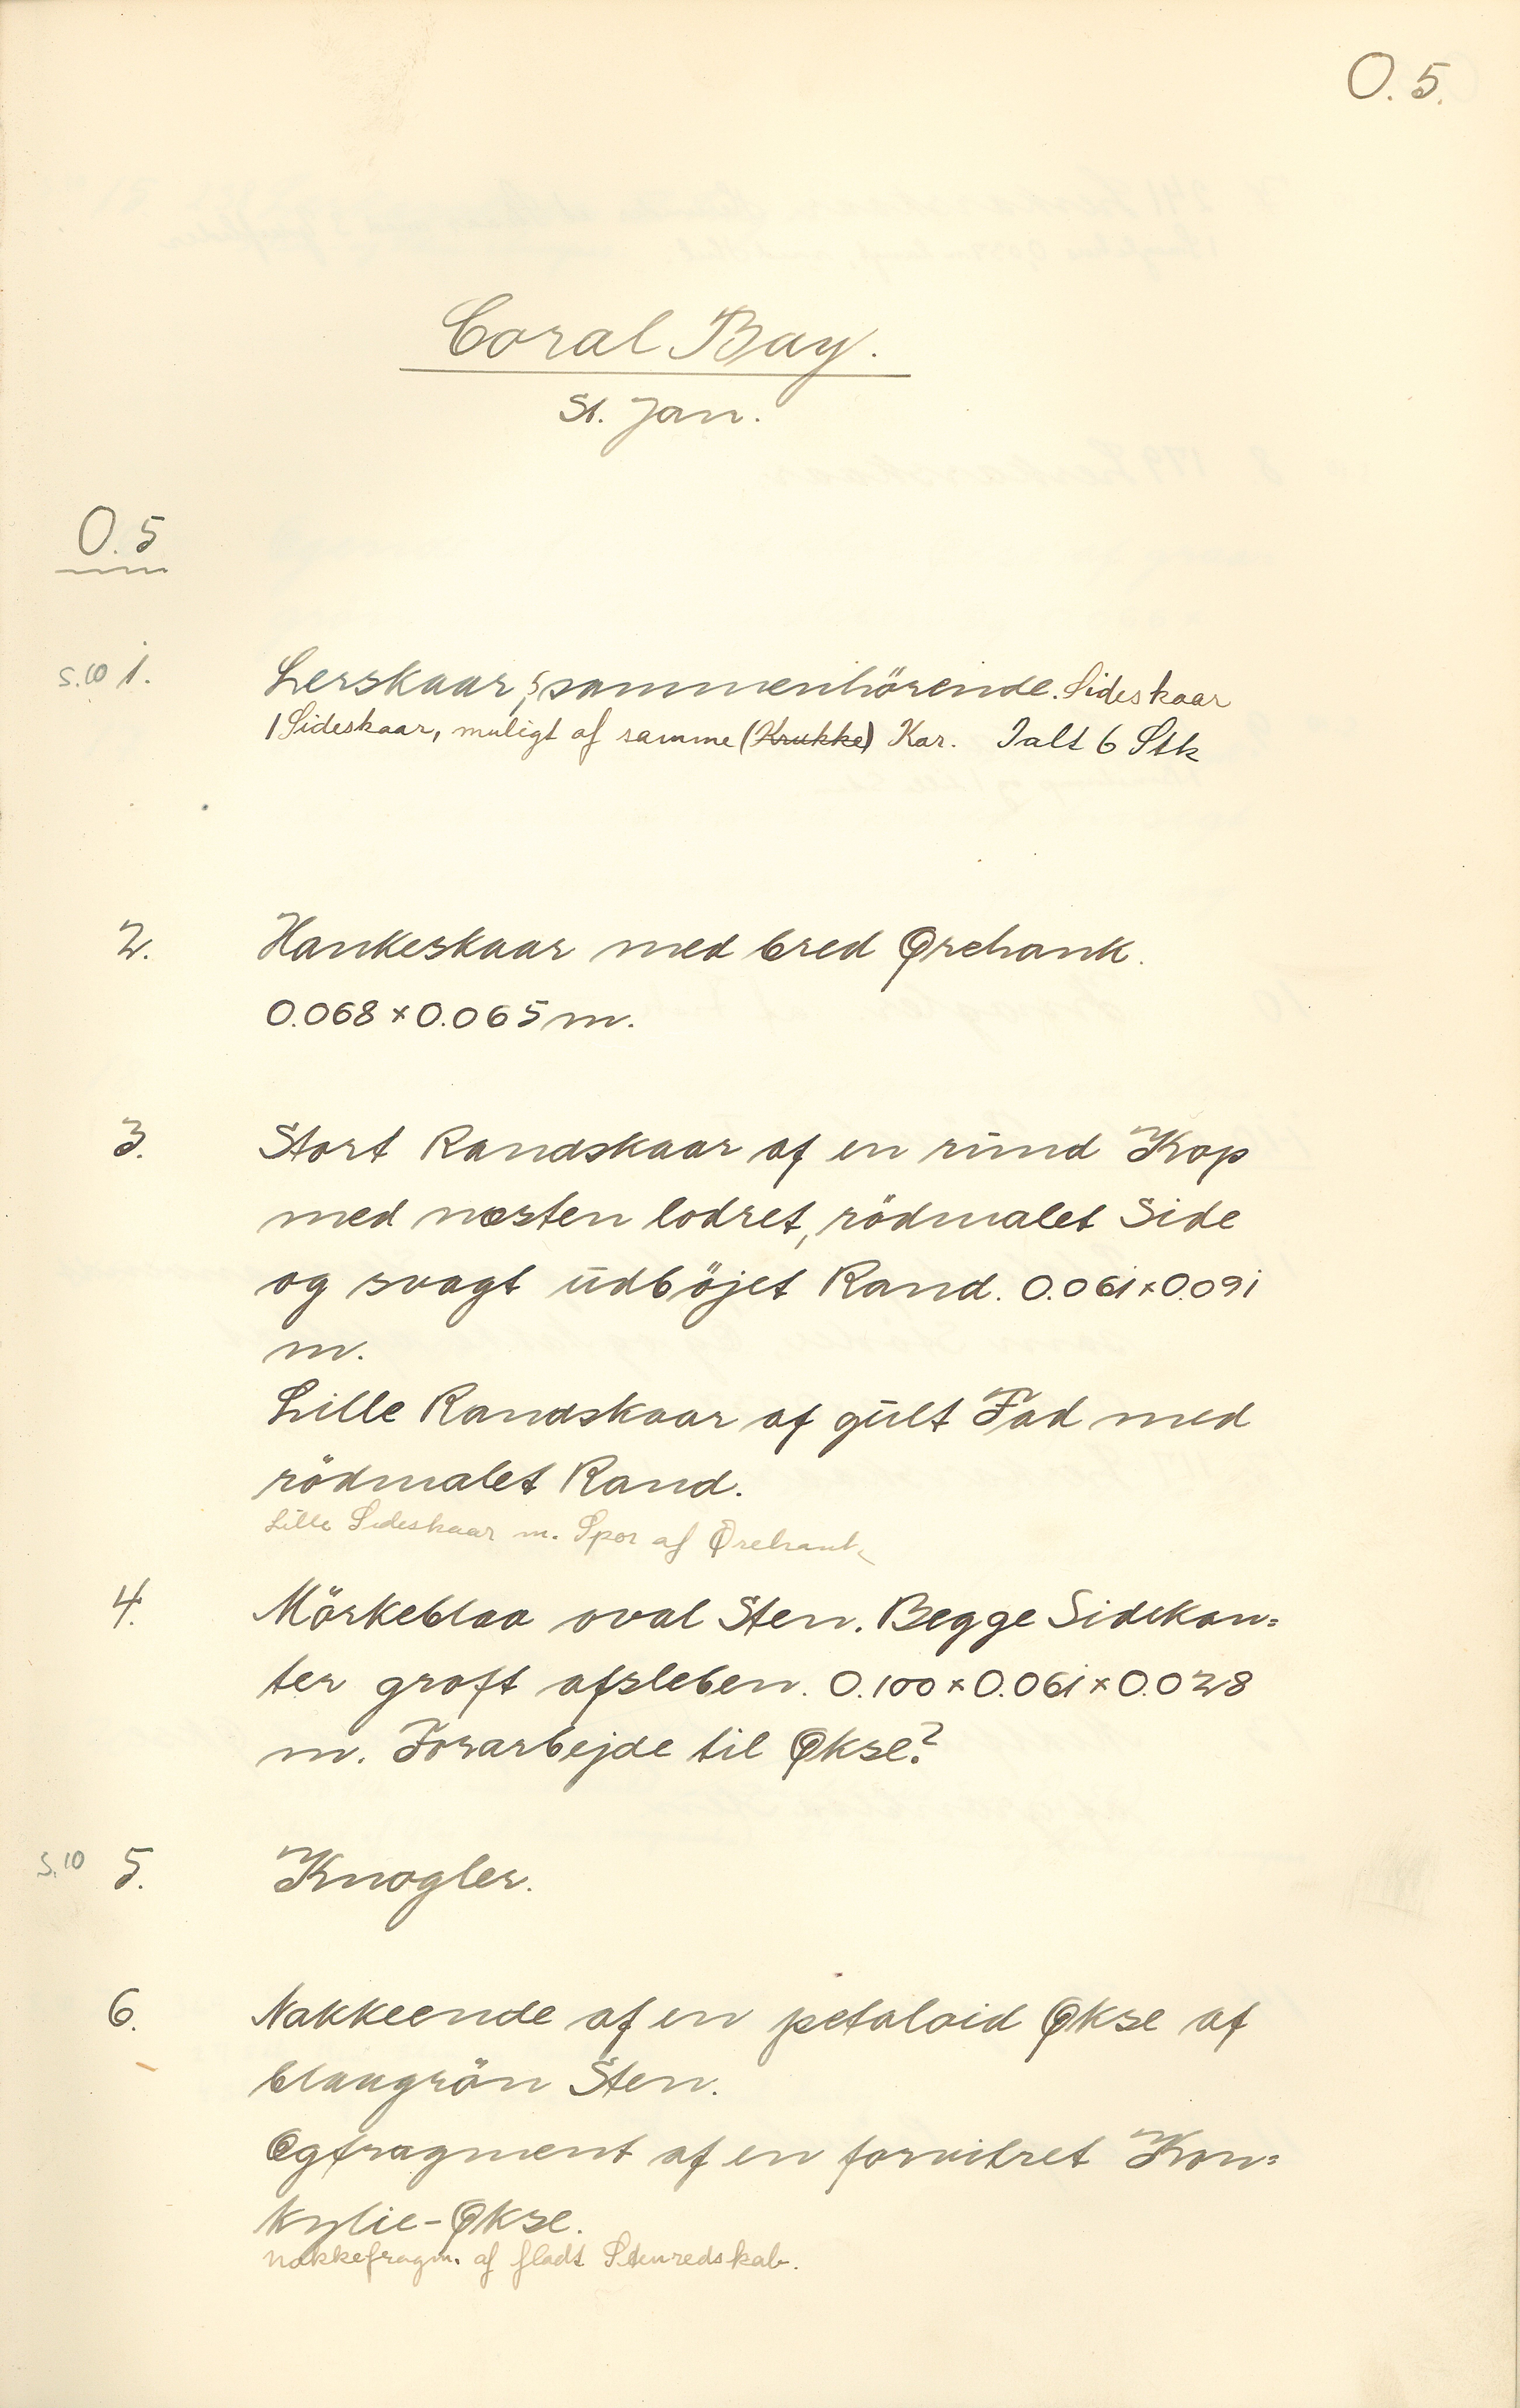 O. 5.
Coral Bay.
St. Jan.
O. 5
S.10 1. Lerskaar, 5 sammenhörende. Sideskaar
1 Sideskaar, muligt af samme (Krukke) Kar. Ialt 6 Stk
2. Hankeskaar med bred Ørehank.
0.068 × 0.065 m.
3. Stort Randskaar af en rund Kop
med næsten lodret, rödmalet Side
og svagt udböjet Rand. 0.061 × 0.091
m.
Lille Randskaar af gult Fad med
rödmalet Rand.
Lille Sideskaar m. Spor af Ørehank
4. Mörkeblaa oval Sten. Begge Sidekan=
ter groft afsleben. 0.100 × 0.061 × 0.028
m. Forarbejde til Økse?
S.10 5. Knogler.
6. Nakkeende af en petaloid Økse af
blaagrön Sten.
Ægfragment af en forvitret Kon=
kylie-Økse.
Nakkefragm. af fladt Stenredskab.